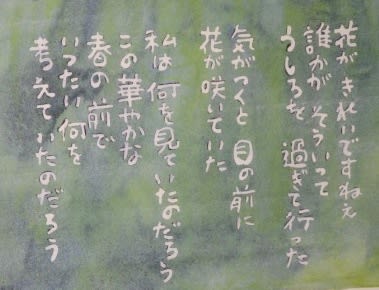 花がきれいですねえ
誰かが そういって
うしろを 過ぎて行った
気がつくと 目の前に
花が 咲いていた
私は 何を見ていたのだろう
この華やかな
春の前で
いったい何を
考えていたのだろう